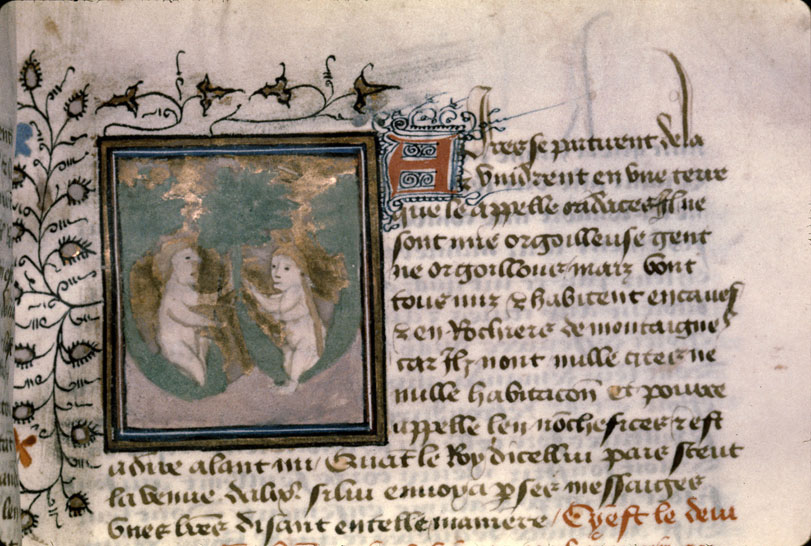 Apres se partirent de la
& vindrent en vne terre
que le appelle oxidaces Il ne
sont mie orgoilleuse gent
ne orgoillous maiz vont
tous nuz & habitent en caues
& en Rochiers de montaigne
car Ilz nont nulle citez ne
nulle habitacon Et pource
appelle len & est
adire alant nu / Quat le Roy dicellui pais sceut
la venue dalixr si lui enuoya p ses messaiges
vnes lres disant en telle maniere / Cy est le deui